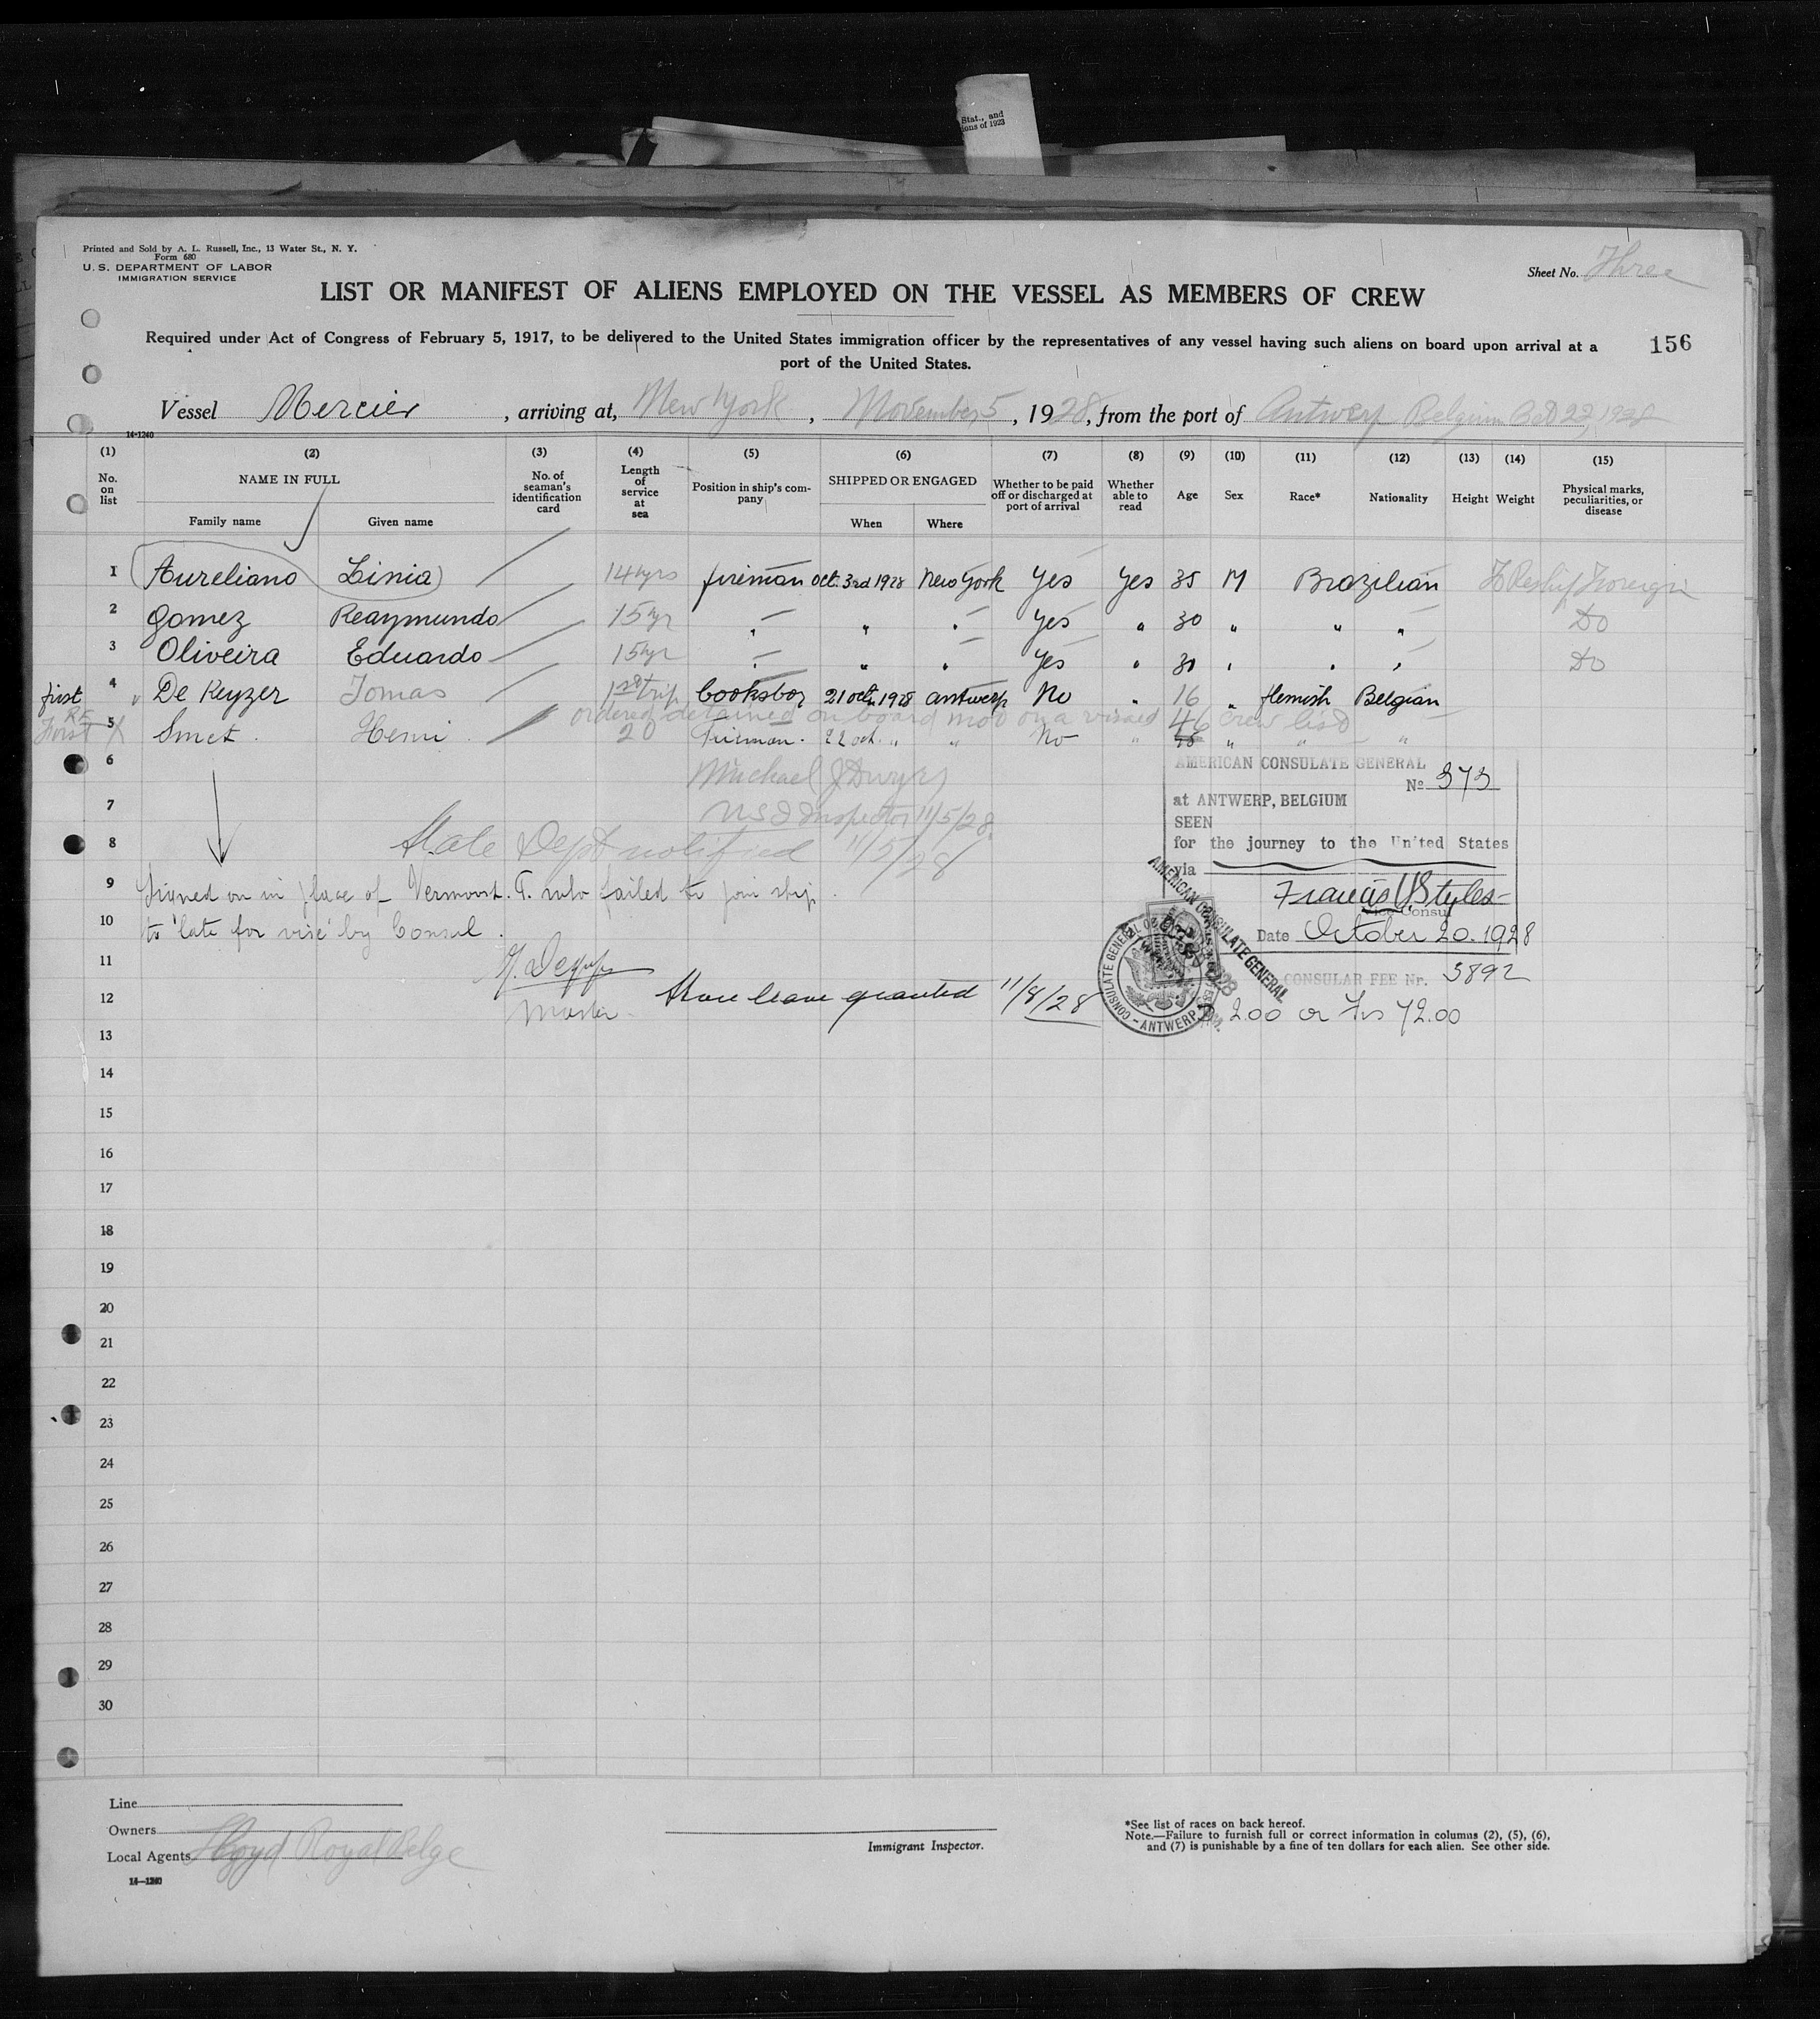 Stat., and
ions of 1923
Printed and Sold by A. L. Russell, Inc., 13 Water St., N. Y.
Form 680
U. S. DEPARTMENT OF LABOR
IMMIGRATION SERVICE
Sheet No. Three
LIST OR MANIFEST OF ALIENS EMPLOYED ON THE VESSEL AS MEMBERS OF CREW
Required under Act of Congress of February 5, 1917, to be delivered to the United States immigration officer by the representatives of any vessel having such aliens on board upon arrival at a
port of the United States.
156
Vessel Mercier, arriving at, New York, November 5, 1928, from the port of Antwerp Belgium Oct 22, 1928
14-1240
(1) (2) (3) (4) (5) (6) (7) (8) (9) (10) (11) (12) (13) (14) (15)
No. on list NAME IN FULL Family name Given name No. of seaman's identification card Length of service at sea Position in ship's company SHIPPED OR ENGAGED When Where Whether to be paid off or discharged at port of arrival Whether able to read Age Sex Race* Nationality Height Weight Physical marks, peculiarities, or disease
1 Aureliano Linia 14 yrs fireman oct. 3rd 1928 New York Yes Yes 35 M Brazilian
2 Gomez Reaymundo 15 yr " " " Yes " 30 " " " Do
3 Oliveira Eduardo 15 yr " " " Yes " 30 " " " Do
first 4 " De Keyzer Tomas 1st trip Cooksboy 21 oct. 1928 antwerp No " 16 " flemish Belgian
ordered detained on board not on a visaed crew list
First X 5 Smet. Henri. 20 Fireman. 22 oct. " " No " 46 " " "
6 Michael J Dwyer
7 U S I Inspector 11/5/28.
8 State Dept notified 11/5/28
9 Signed on in place of Vermoost. T. who failed to join ship.
10 to 'late for visé' by Consul.
11
12 Master. Shore leave granted 11/8/28
AMERICAN CONSULATE GENERAL
No 373
at ANTWERP, BELGIUM
SEEN
for the journey to the United States
via
Francis Styles
Vice Consul
Date October 20. 1928
CONSULAR FEE Nr. 3892
$ 2.00 or Frs 72.00
AMERICAN CONSULATE GENERAL
CONSULATE GENERAL
ANTWERP
13
14
15
16
17
18
19
20
21
22
23
24
25
26
27
28
29
30
Line
Owners
Local Agents Lloyd Royal Belge
14-1240
Immigrant Inspector.
*See list of races on back hereof.
Note.—Failure to furnish full or correct information in columns (2), (5), (6),
and (7) is punishable by a fine of ten dollars for each alien. See other side.